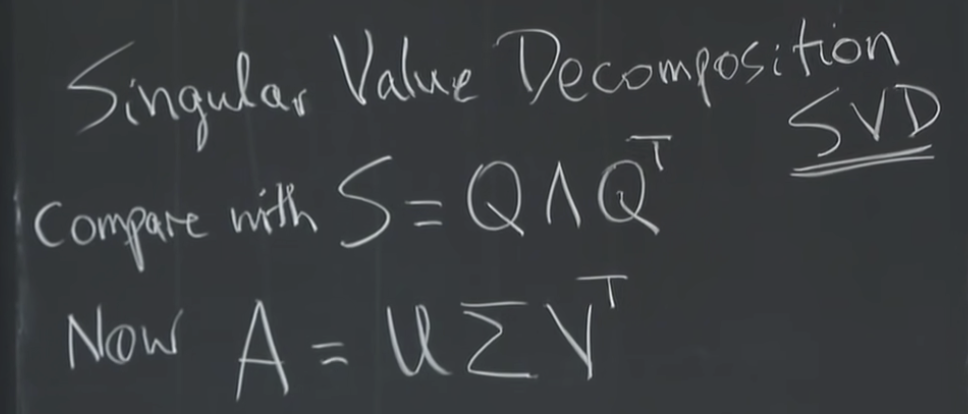 Singular Value Decomposition
SVD
Compare with S = QΛQᵀ
Now A = UΣVᵀ